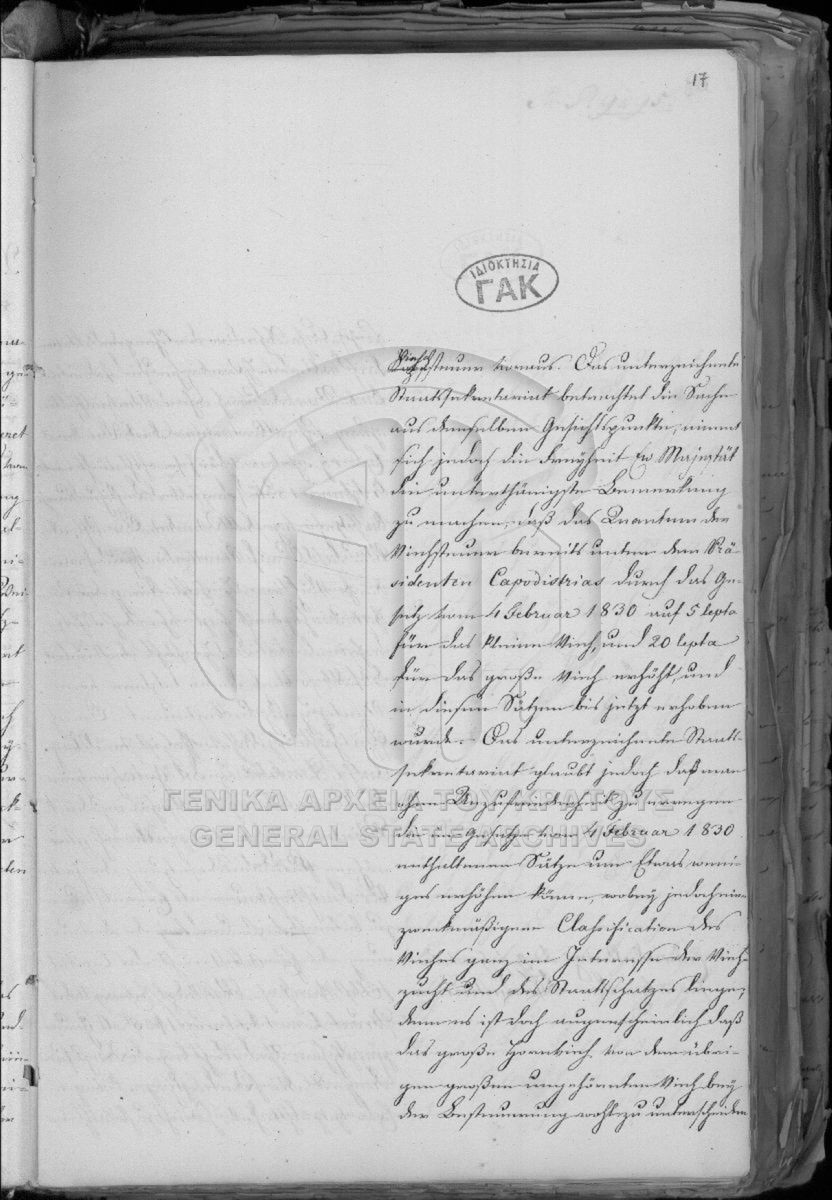 17
ΙΔΙΟΚΤΗΣΙΑ
ΓΑΚ
Viehsteuer voraus. Das unterzeichnete
Staatssekretariat betrachtet die Sache
aus demselben Gesichtspunkte, nimmt
sich jedoch die Freyheit Ew Majestät
die unterthänigste Bemerkung
zu machen, daß das Quantum der
Viehsteuer bereits unter dem Prä-
sidenten Capodistrias durch das Ge-
setz vom 4 Februar 1830 auf 5 lepta
für das kleine Vieh, und 20 lepta
für das große Vieh erhöht, und
in diesen Sätzen bis jetzt erhoben
wurde. Das unterzeichnete Staats-
sekretariat glaubt jedoch daß man
ohne Unzufriedenheit zu erregen
die im Gesetze vom 4 Februar 1830
enthaltenen Sätze um Etwas weni-
ges erhöhen könne, wobey jedoch eine
zweckmäßigere Classification des
Viehes ganz im Interesse der Vieh-
zucht und des Staatsschatzes liege;
denn es ist doch augenscheinlich daß
das große Hornvieh von dem übri-
gen großen ungehörnten Vieh bey
der Besteuerung wohl zu unterscheiden
ΓΕΝΙΚΑ ΑΡΧΕΙΑ ΤΟΥ ΚΡΑΤΟΥΣ
GENERAL STATE ARCHIVES